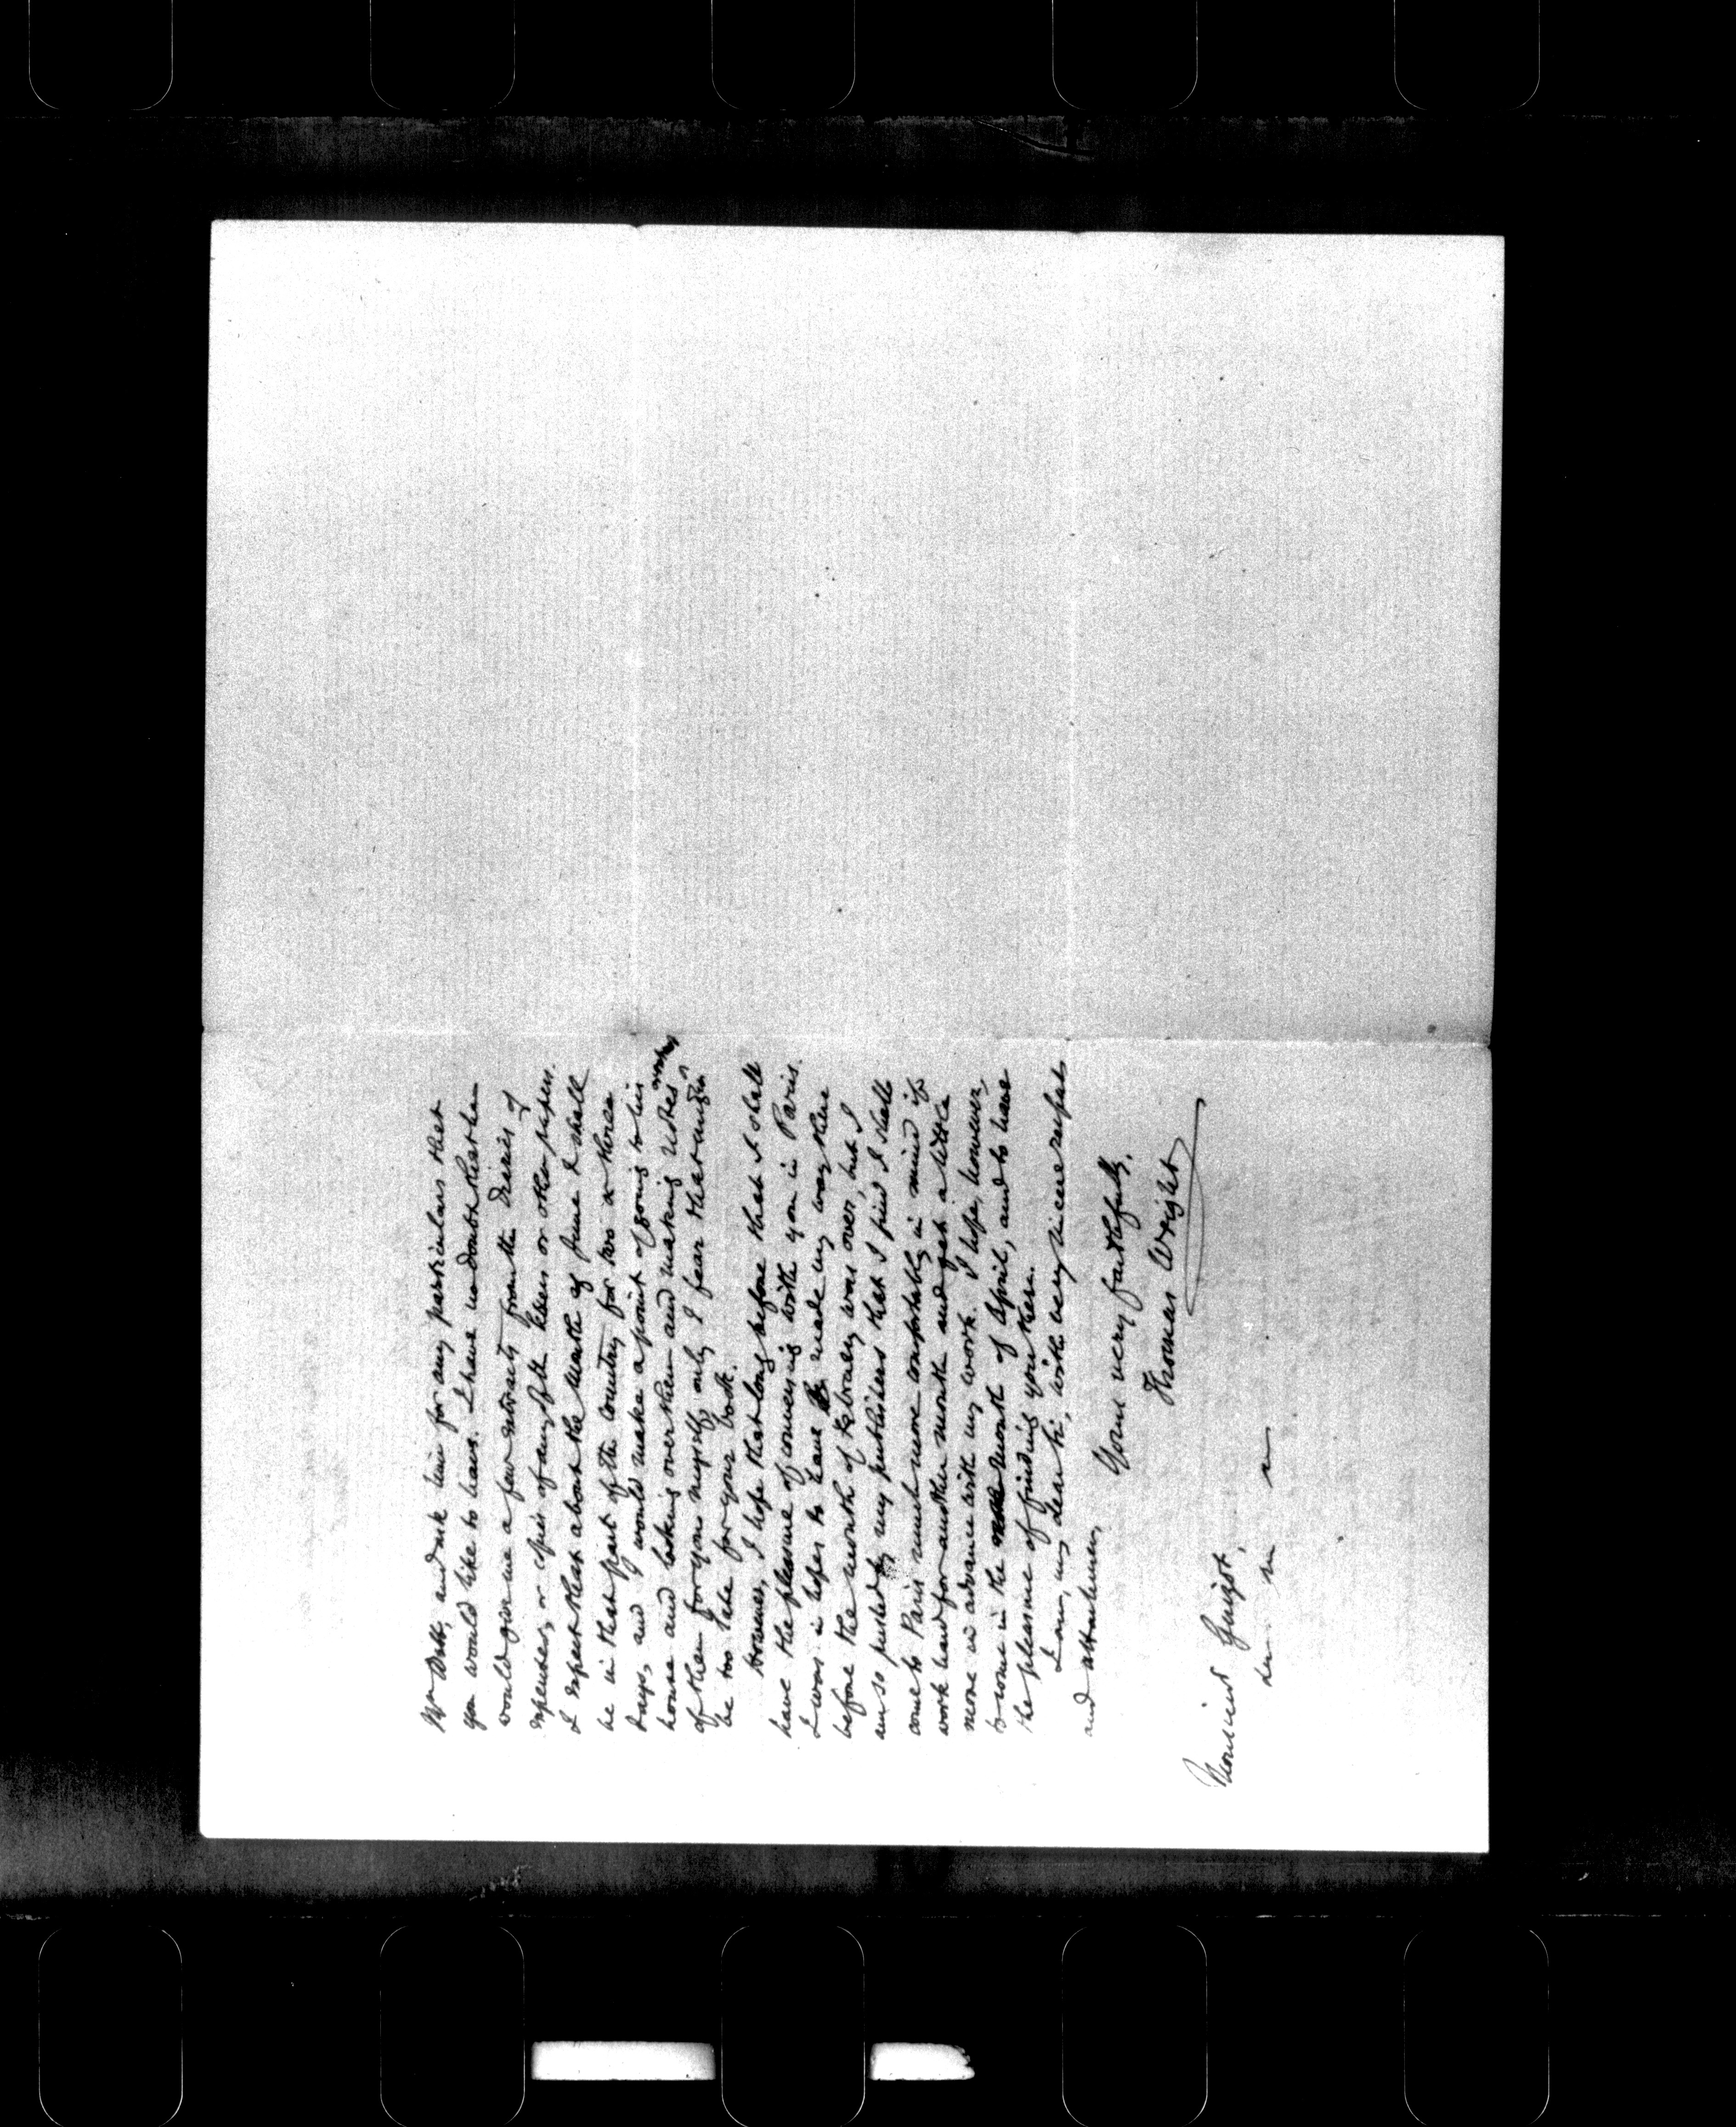 Mr Watt, and ask him for any particulars that
you would like to have. I have no doubt that he
would give me a few extracts from the Diaries of
expenses, or copies of any of the leases or other papers.
I expect that about the Month of June I shall
be in that part of the country for two or three
days, and I would make a point of going to his
house and looking over them and making notes
of them for you myself, only I fear that might
be too late for your book.
However, I hope that long before that I shall
have the pleasure of conversing with you in Paris.
I was in hopes to have made my way there
before the month of February was over, but I
am so pushed by my publishers that I find I shall
come to Paris much more comfortably in mind if I
work hard for another month and get a little
more in advance with my work. I hope, however,
to come in the month of April, and to have
the pleasure of finding you there.
I am, my dear Sir, with very sincere respect
and attachment,
Yours very faithfully,
Thomas Wright
Monsieur Guizot,